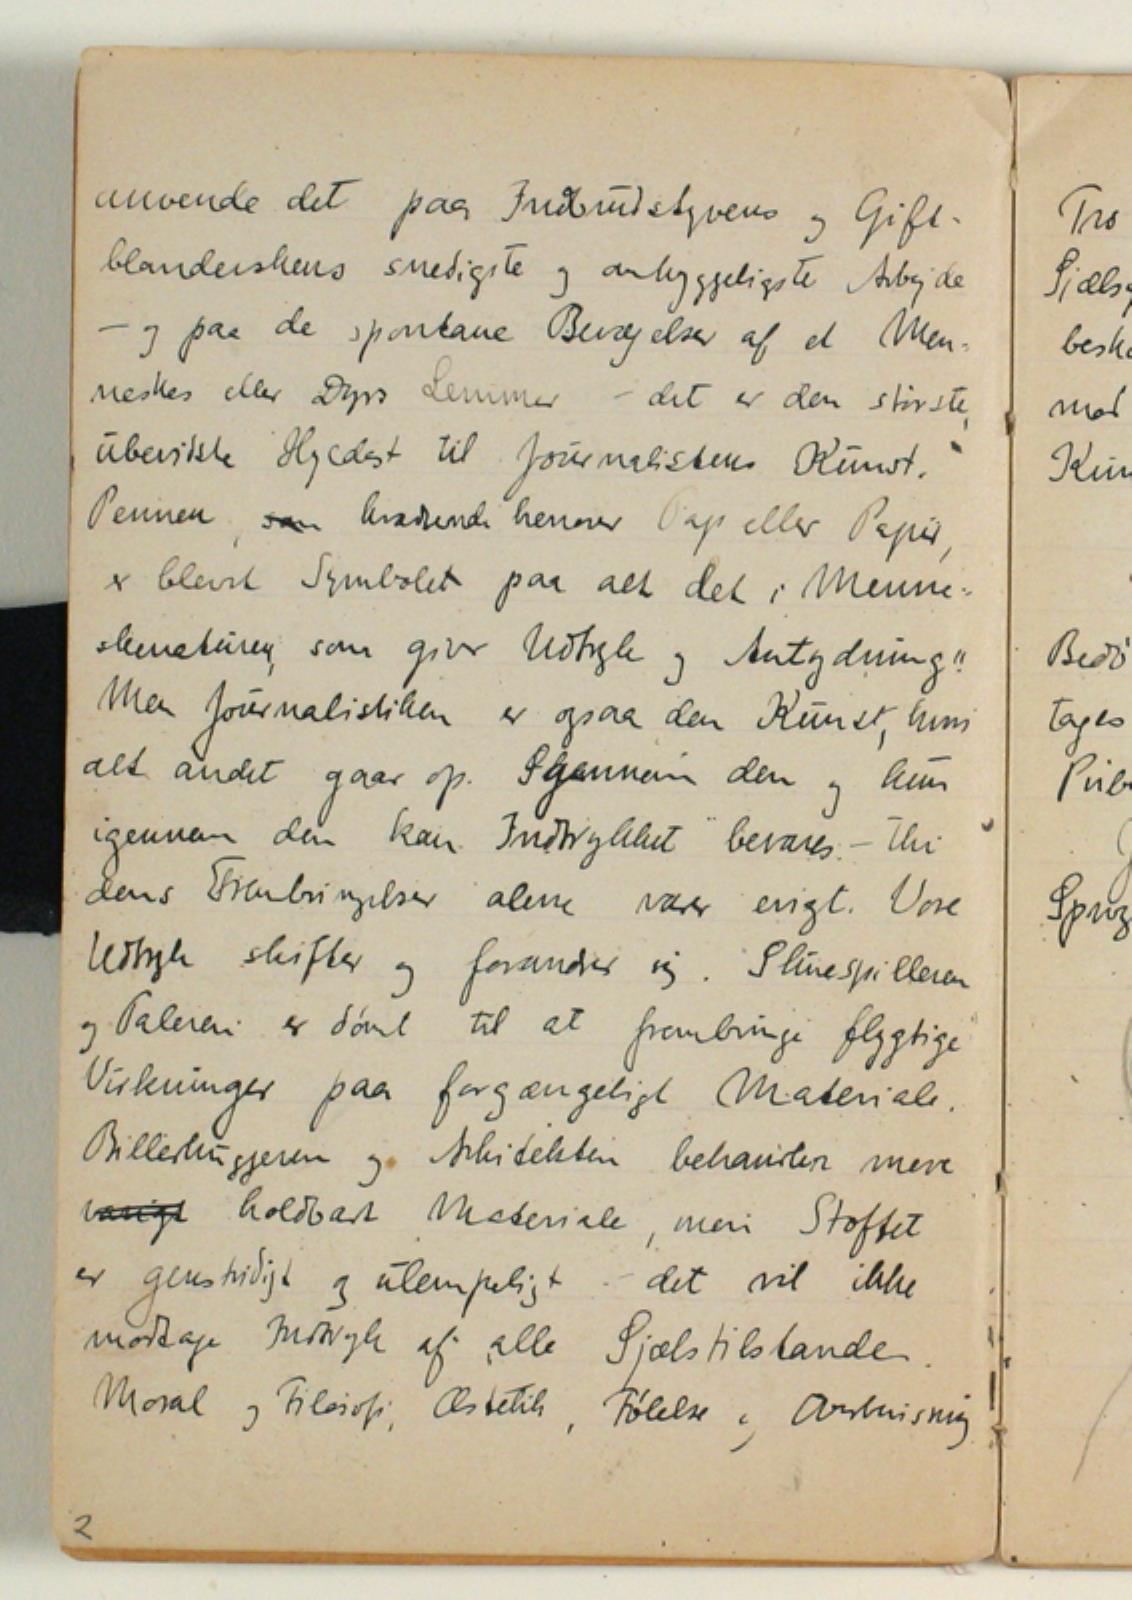 anvende det paa Indbrudstyvens og Gift-
blanderskens snedigste og omhyggeligste Arbejde
– og paa de spontane Bevægelser af et Men-
neskes eller Dyrs Lemmer – det er den største,
ubevidste Hyldest til Journalistens Kunst.
Pennen, som kradsende henover Pap eller Papir,
er blevet Symbolet paa alt det i Menne-
skenaturen, som giver Udtryk og Antydning".
Men Journalistiken er ogsaa den Kunst, hvori
alt andet gaar op. Igennem den og kun
igennem den kan Indtrykket bevares – thi
dens Frembringelser alene varer evigt. Vore
Udtryk skifter og forandrer sig. Skuespilleren
og Taleren er dømt til at frembringe flygtige
Virkninger paa forgængeligt Materiale.
Billedhuggeren og Arkitekten behandler mere
varigt holdbart Materiale, men Stoffet
er genstridigt og ulempeligt – det vil ikke
modtage Indtryk af alle Sjælstilstande.
Moral og Filosofi, Æstetik, Følelse og
2
Tro
mod
tages